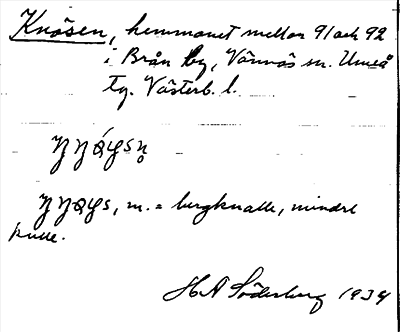 Knösen, hemmanet mellan 91 och 92
i Brån by, Vännäs sn. Umeå
tg. Västerb. l.
m. = bergknalle, mindre
kulle.
H A Söderberg 1934